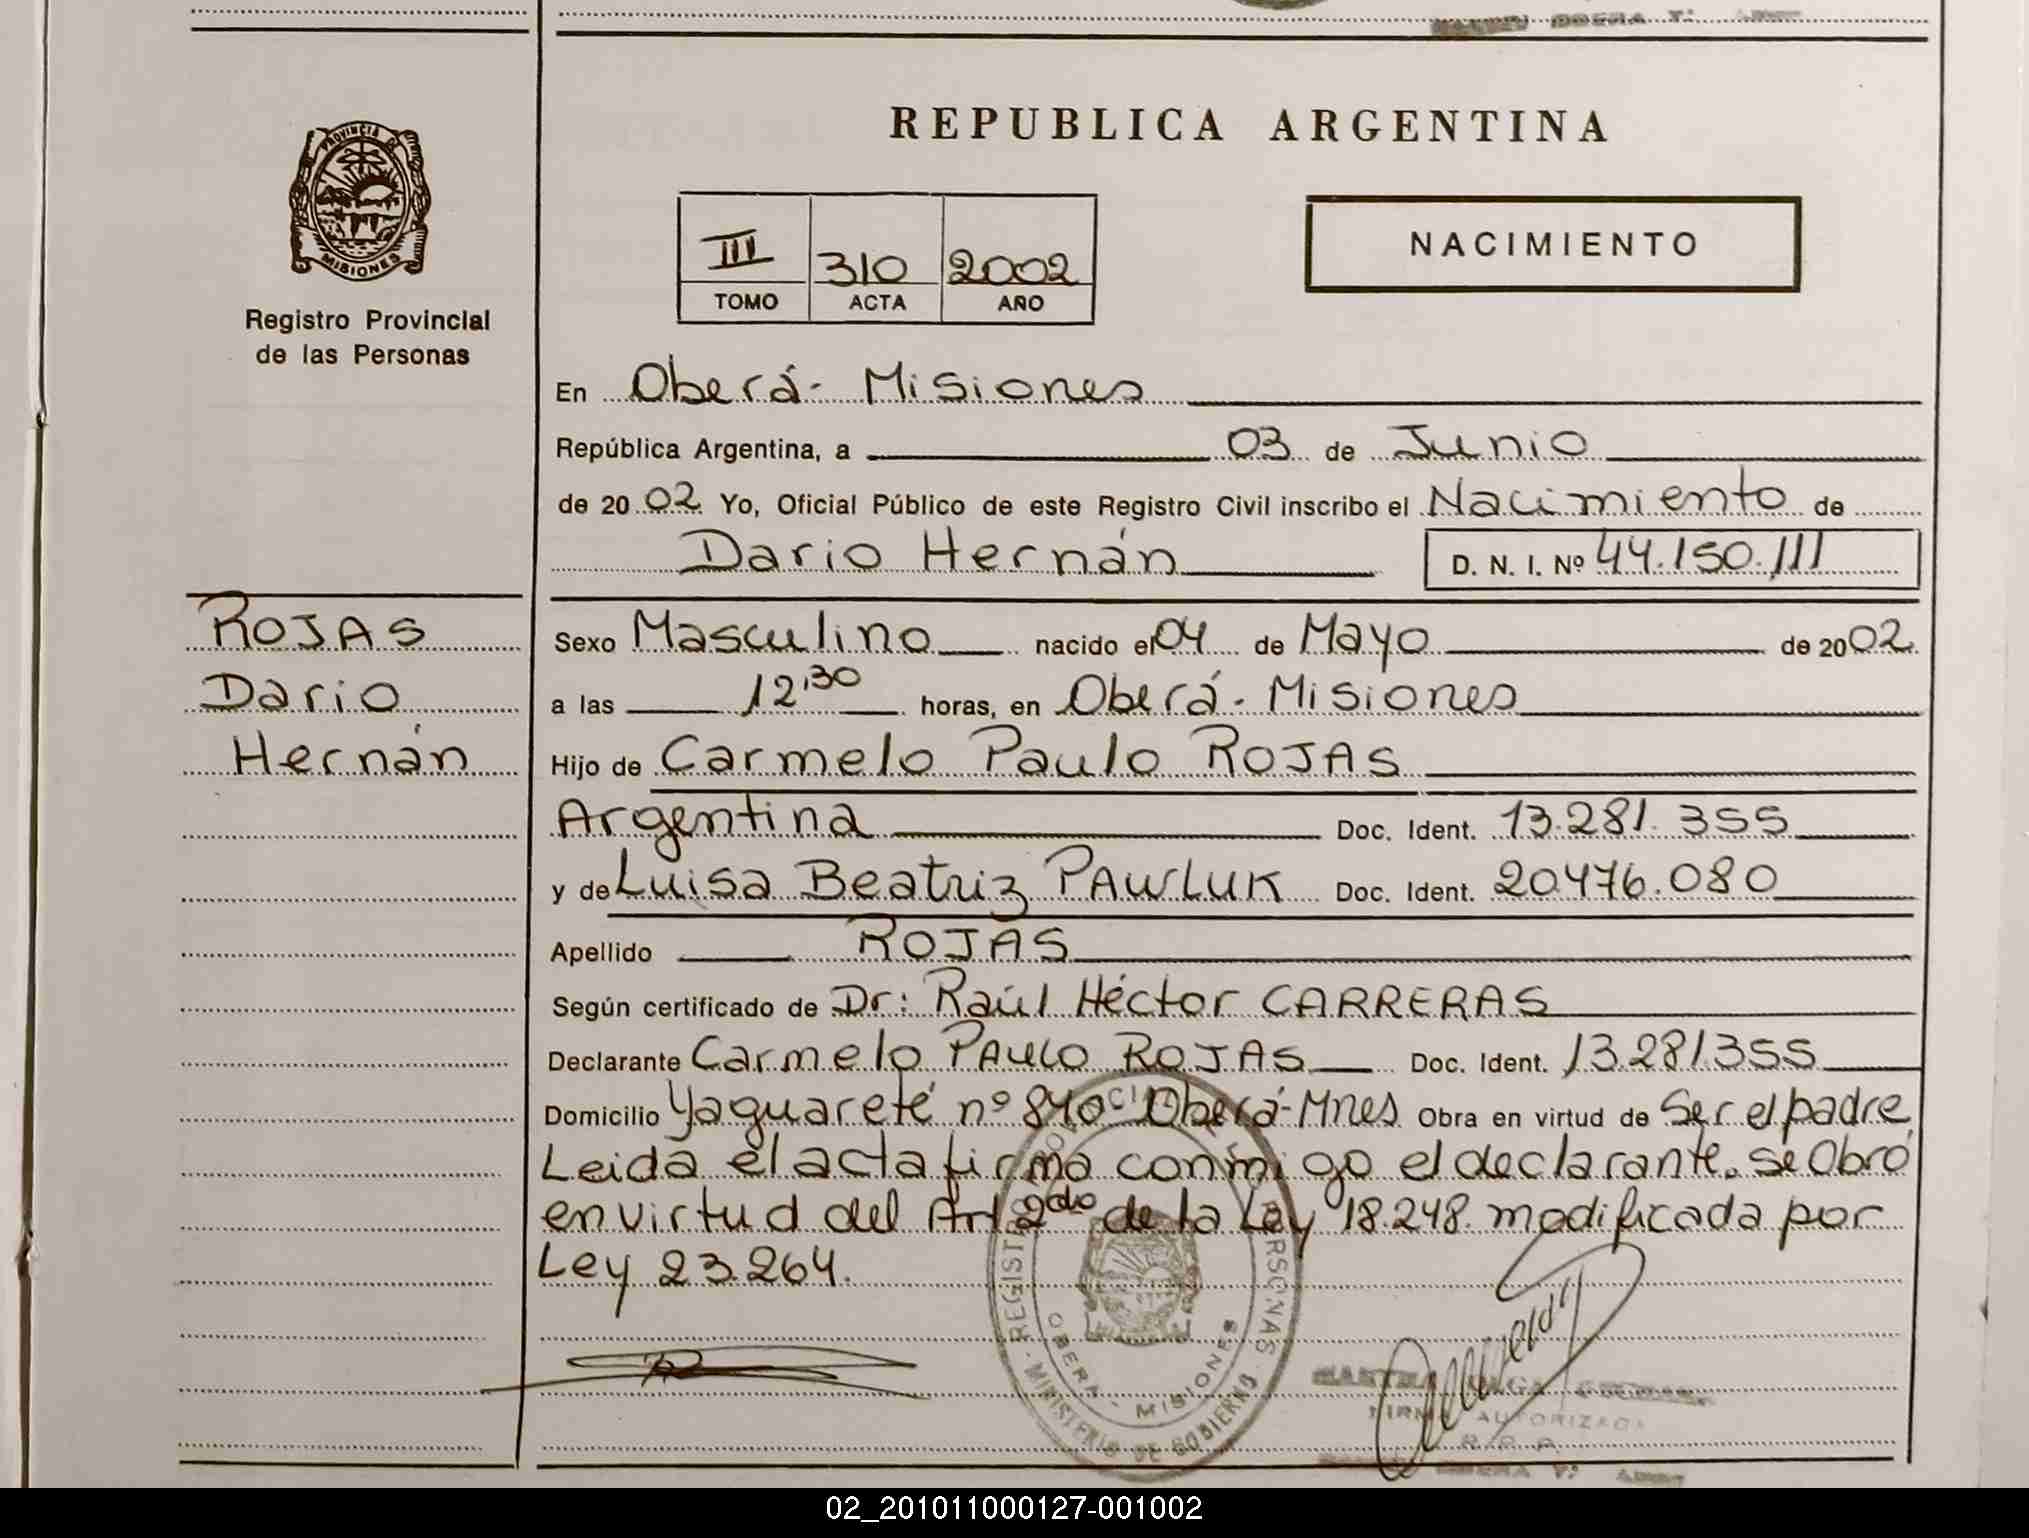 REPUBLICA ARGENTINA
PROVINCIA DE
MISIONES
Registro Provincial
de las Personas
III 310 2002
TOMO ACTA AÑO
NACIMIENTO
En Oberá - Misiones
República Argentina, a 03 de Junio
de 20 02 Yo, Oficial Público de este Registro Civil inscribo el Nacimiento de
Dario Hernán D. N. I. Nº 44.150.111
ROJAS
Dario
Hernán
Sexo Masculino nacido el 04 de Mayo de 20 02
a las 12,30 horas, en Oberá - Misiones
Hijo de Carmelo Paulo ROJAS
Argentina Doc. Ident. 13.281.355
y de Luisa Beatriz PAWLUK Doc. Ident. 20.476.080
Apellido ROJAS
Según certificado de Dr: Raúl Héctor CARRERAS
Declarante Carmelo PAULO ROJAS Doc. Ident. 13.281.355
Domicilio Yaguareté nº 840 Oberá-Mnes Obra en virtud de Ser el padre
Leida el acta firma conmigo el declarante. Se Obró
en virtud del Art 2do de la Ley 18.248. modificada por
Ley 23.264.
OBERA - MISIONES
MINISTERIO DE GOBIERNO
OLGA
FIRMA AUTORIZADA
R. P. P.
OBERA
02_201011000127-001002